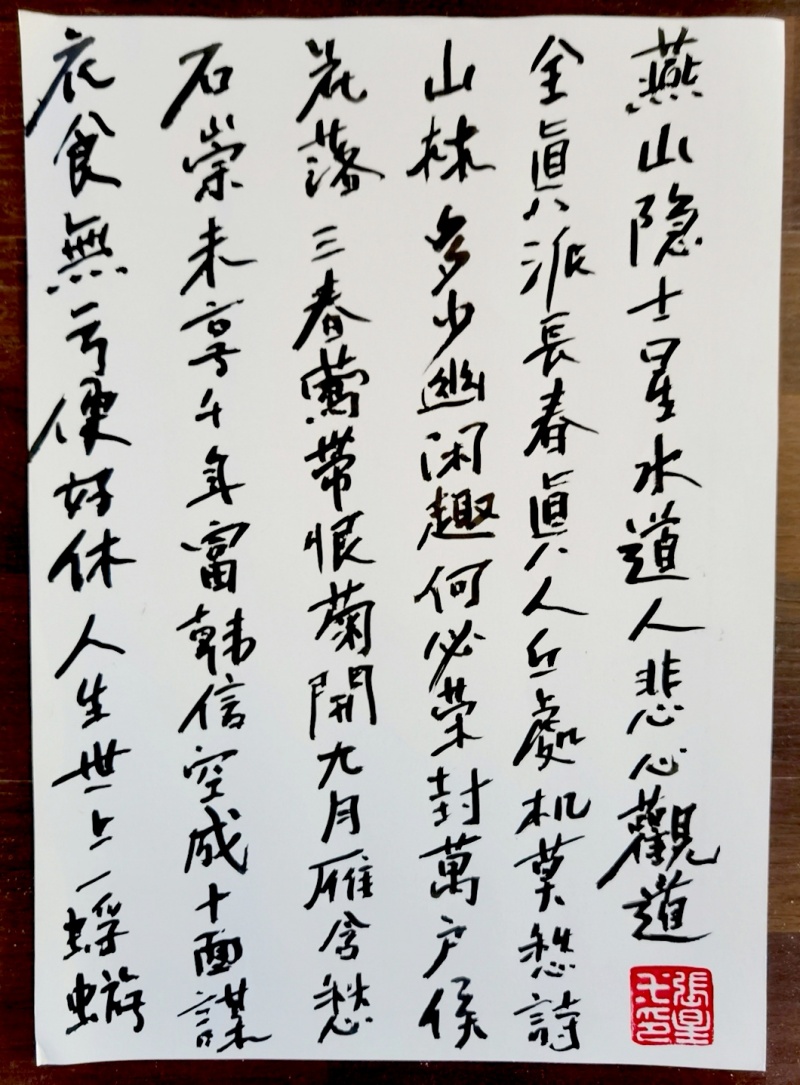 衣食無亏便好休人生世上一蜉蝣
石崇未享千年富韓信空成十面謀
花落三春鶯帶恨菊開九月雁含愁
山林多少幽閑趣何必荣封萬户侯
全眞派長春眞人丘處机莫愁詩
燕山隐士星水道人悲心觀道
張星